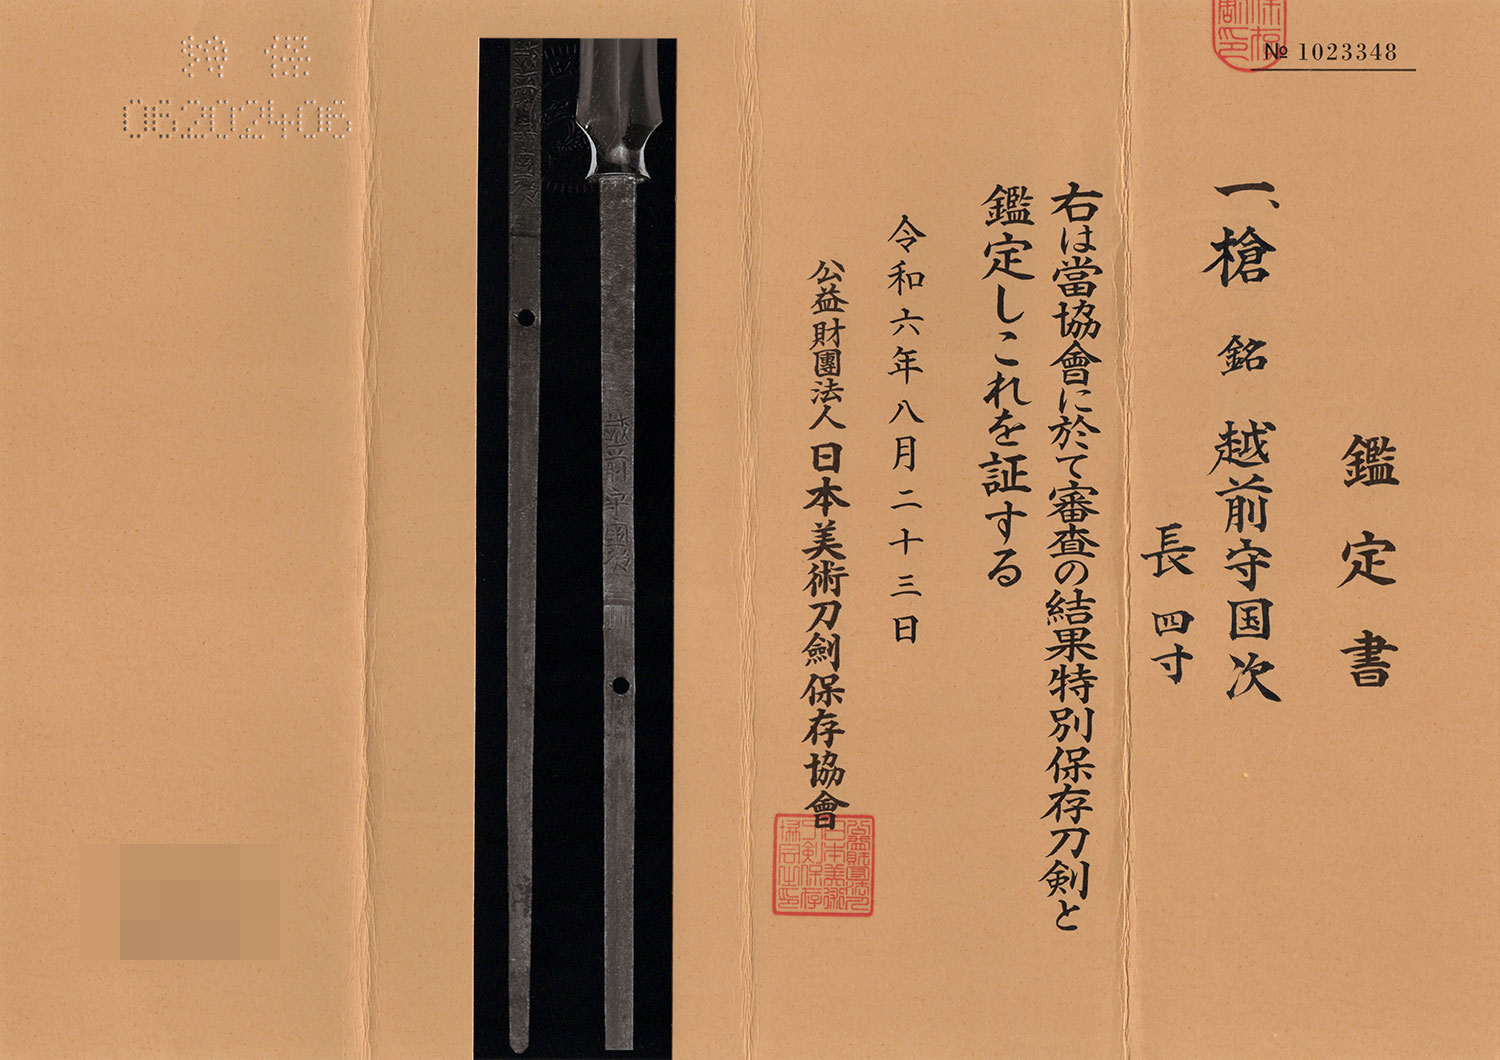 № 1023348
鑑定書
一、槍 銘 越前守国次
長 四寸
右は當協會に於て審査の結果特別保存刀剣と
鑑定しこれを証する
令和六年八月二十三日
公益財團法人 日本美術刀劍保存協會
越前守国次
特保
06202406